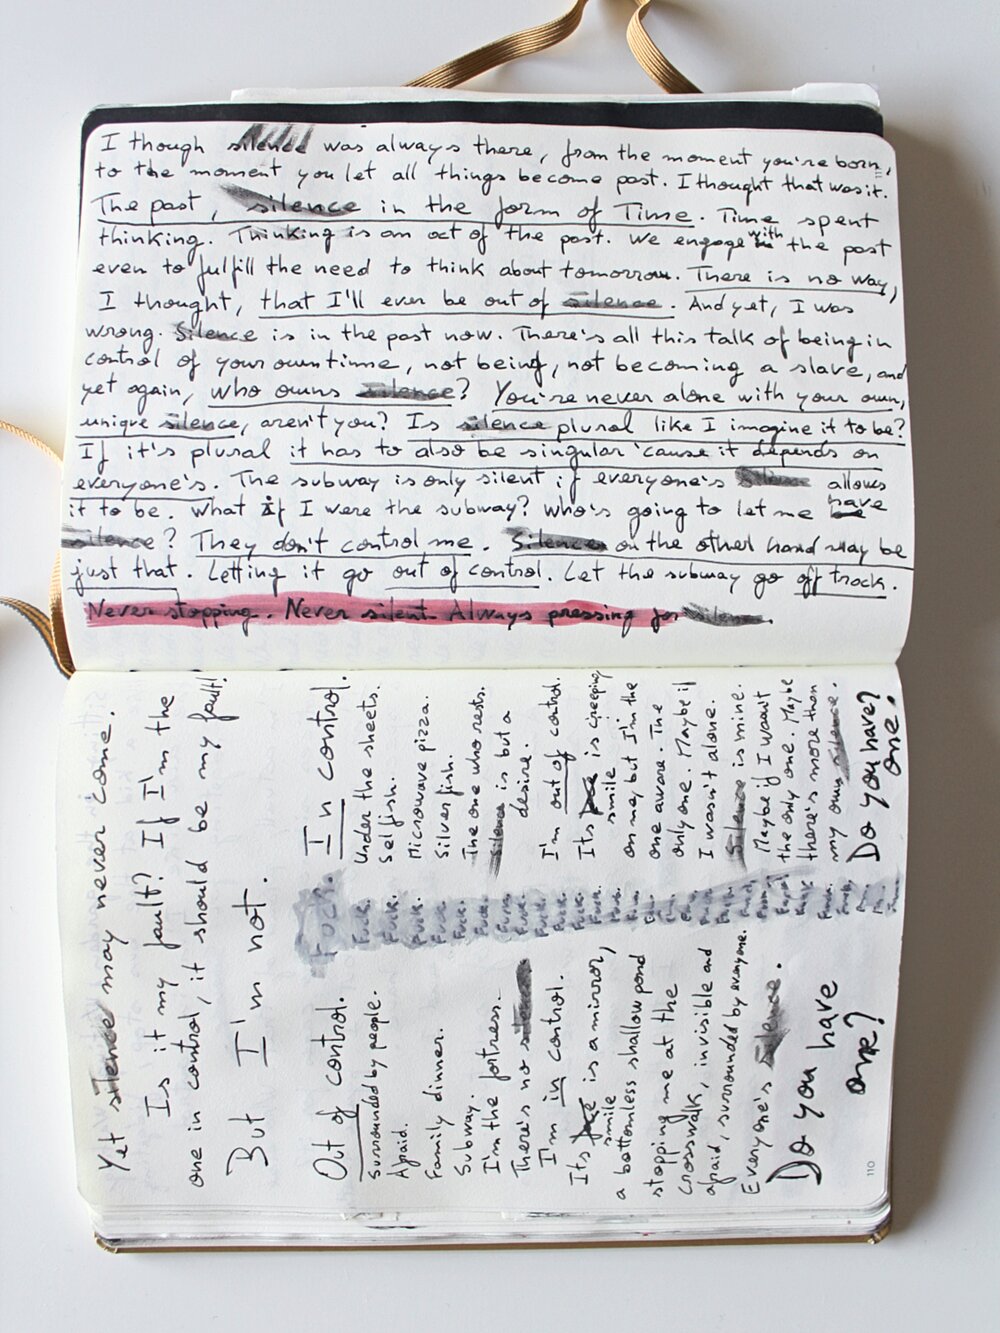 I though silence was always there, from the moment you're born,
to the moment you let all things become past. I thought that was it.
The past, silence in the form of Time. Time spent
thinking. Thinking is an act of the past. We engage with the past
even to fulfill the need to think about tomorrow. There is no way,
I thought, that I'll ever be out of silence. And yet, I was
wrong. Silence is in the past now. There's all this talk of being in
control of your own time, not being, not becoming a slave, and
yet again, who owns silence? You're never alone with your own,
unique silence, aren't you? Is silence plural like I imagine it to be?
If it's plural it has to also be singular 'cause it depends on
everyone's. The subway is only silent if everyone's silence allows
it to be. What if I were the subway? Who's going to let me have
silence? They don't control me. Silence on the other hand may be
just that. Letting it go out of control. Let the subway go off track.
Never stopping. Never silent. Always pressing for silence.
Yet silence may never come.
Is it my fault? If I'm the
one in control, it should be my fault!
But I'm not.
Out of control.
Surrounded by people.
Afraid.
Family dinner.
Subway.
I'm the fortress.
There's no silence
I'm in control.
Its smile is a mirror,
a bottomless shallow pond
stopping me at the
crosswalk, invisible and
afraid, surrounded by everyone.
Everyone's silence.
Do you have
one?
Fuck.
Fuck.
Fuck.
Fuck.
Fuck.
Fuck.
Fuck.
Fuck.
Fuck.
Fuck.
Fuck.
In control.
Under the sheets.
Selfish.
Microwave pizza.
Silverfish.
The one who rests.
Silence is but a
desire.
I'm out of control.
Its smile is creeping
on me, but I'm the
one aware. The
only one. Maybe if
I wasn't alone.
Silence is mine.
Maybe if I wasn't
the only one. Maybe
there's more than
my own silence.
Do you have?
one.
110